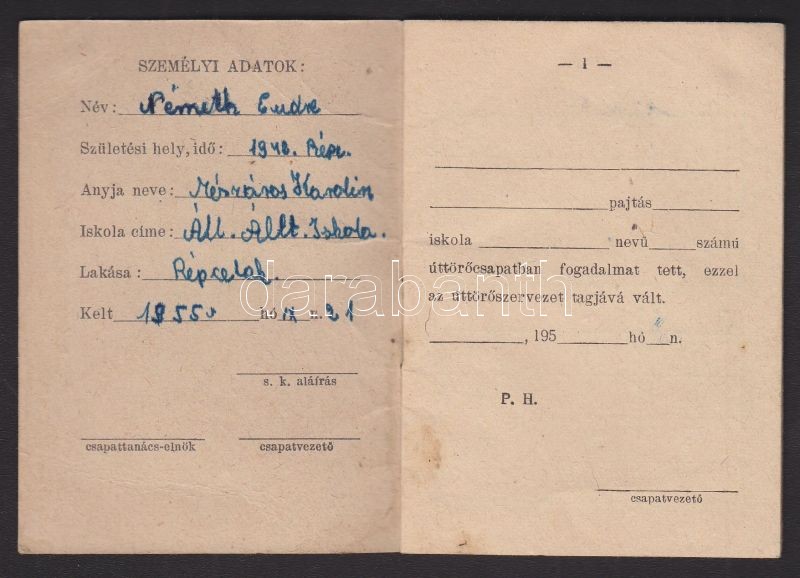 SZEMÉLYI ADATOK:
Név: Németh Endre
Születési hely, idő: 1942. Répc.
Anyja neve: Mészáros Karolin
Iskola címe: Áll. Ált. Iskola.
Lakása: Répcelak.
Kelt 1955 hó IX n. 21
s. k. aláírás
csapattanács-elnök csapatvezető
— 1 —
pajtás
iskola nevü számú
úttörőcsapatban fogadalmat tett, ezzel
az úttörőszervezet tagjává vált.
, 195 hó n.
P. H.
csapatvezető
darabanth